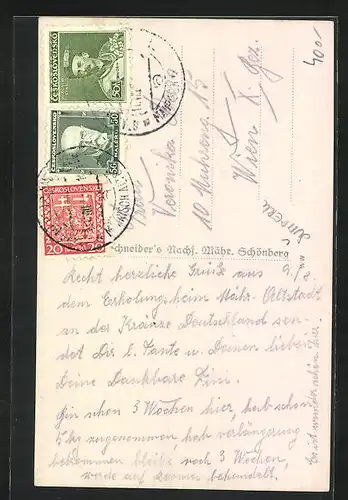 400.-
ČESKOSLOVENSKO
50
ČESKOSLOVENSKO
50
ČESKOSLOVENSKO
20 20
Veronika
10
15
Wien X. Bez.
Schneider's Nachf. Mähr. Schönberg
Recht herzliche Grüße aus
dem Erholungsheim Mähr. Altstadt
an der Gränze Deutschland sen-
det Dir l. Tante u. Deinen lieben
Deine Dankbare
Bin schon 3 Wochen hier, hab schon
5 kg zugenommen, hab verlängerung
bekommen bleibe noch 3 Wochen,
werde auf behandelt.
Es ist schön hier